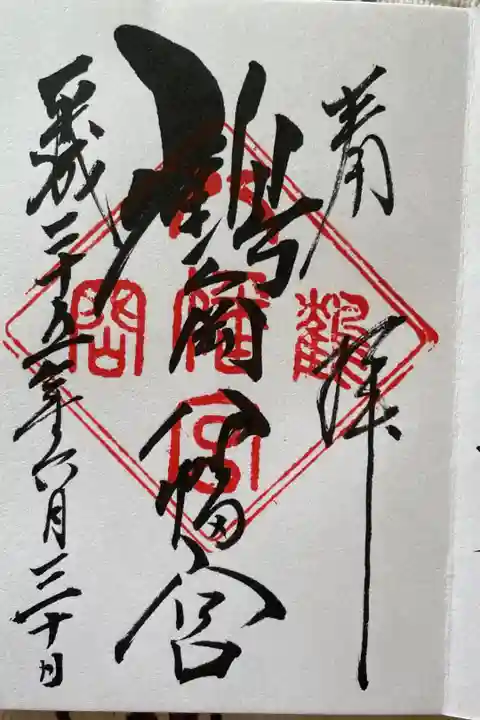 奉拝
鶴岡八幡宮
平成二十五年六月三十日
鶴
八幡宮
岡